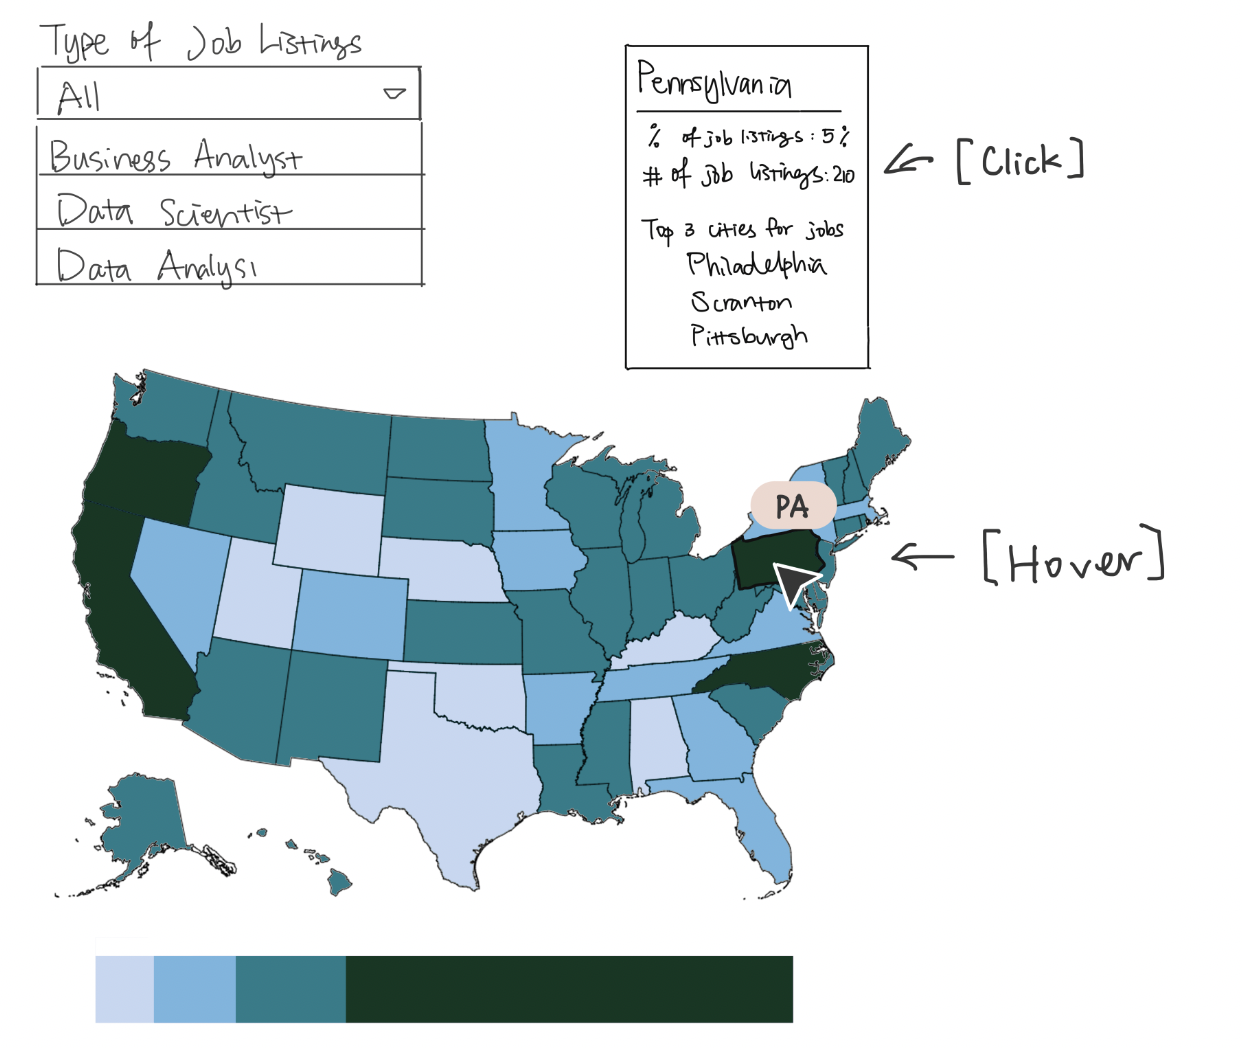 Type of Job Listings
All
Business Analyst
Data Scientist
Data Analyst
Pennsylvania
% of job listings: 5%
# of job listings: 210
Top 3 cities for jobs
Philadelphia
Scranton
Pittsburgh
[Click]
PA
[Hover]